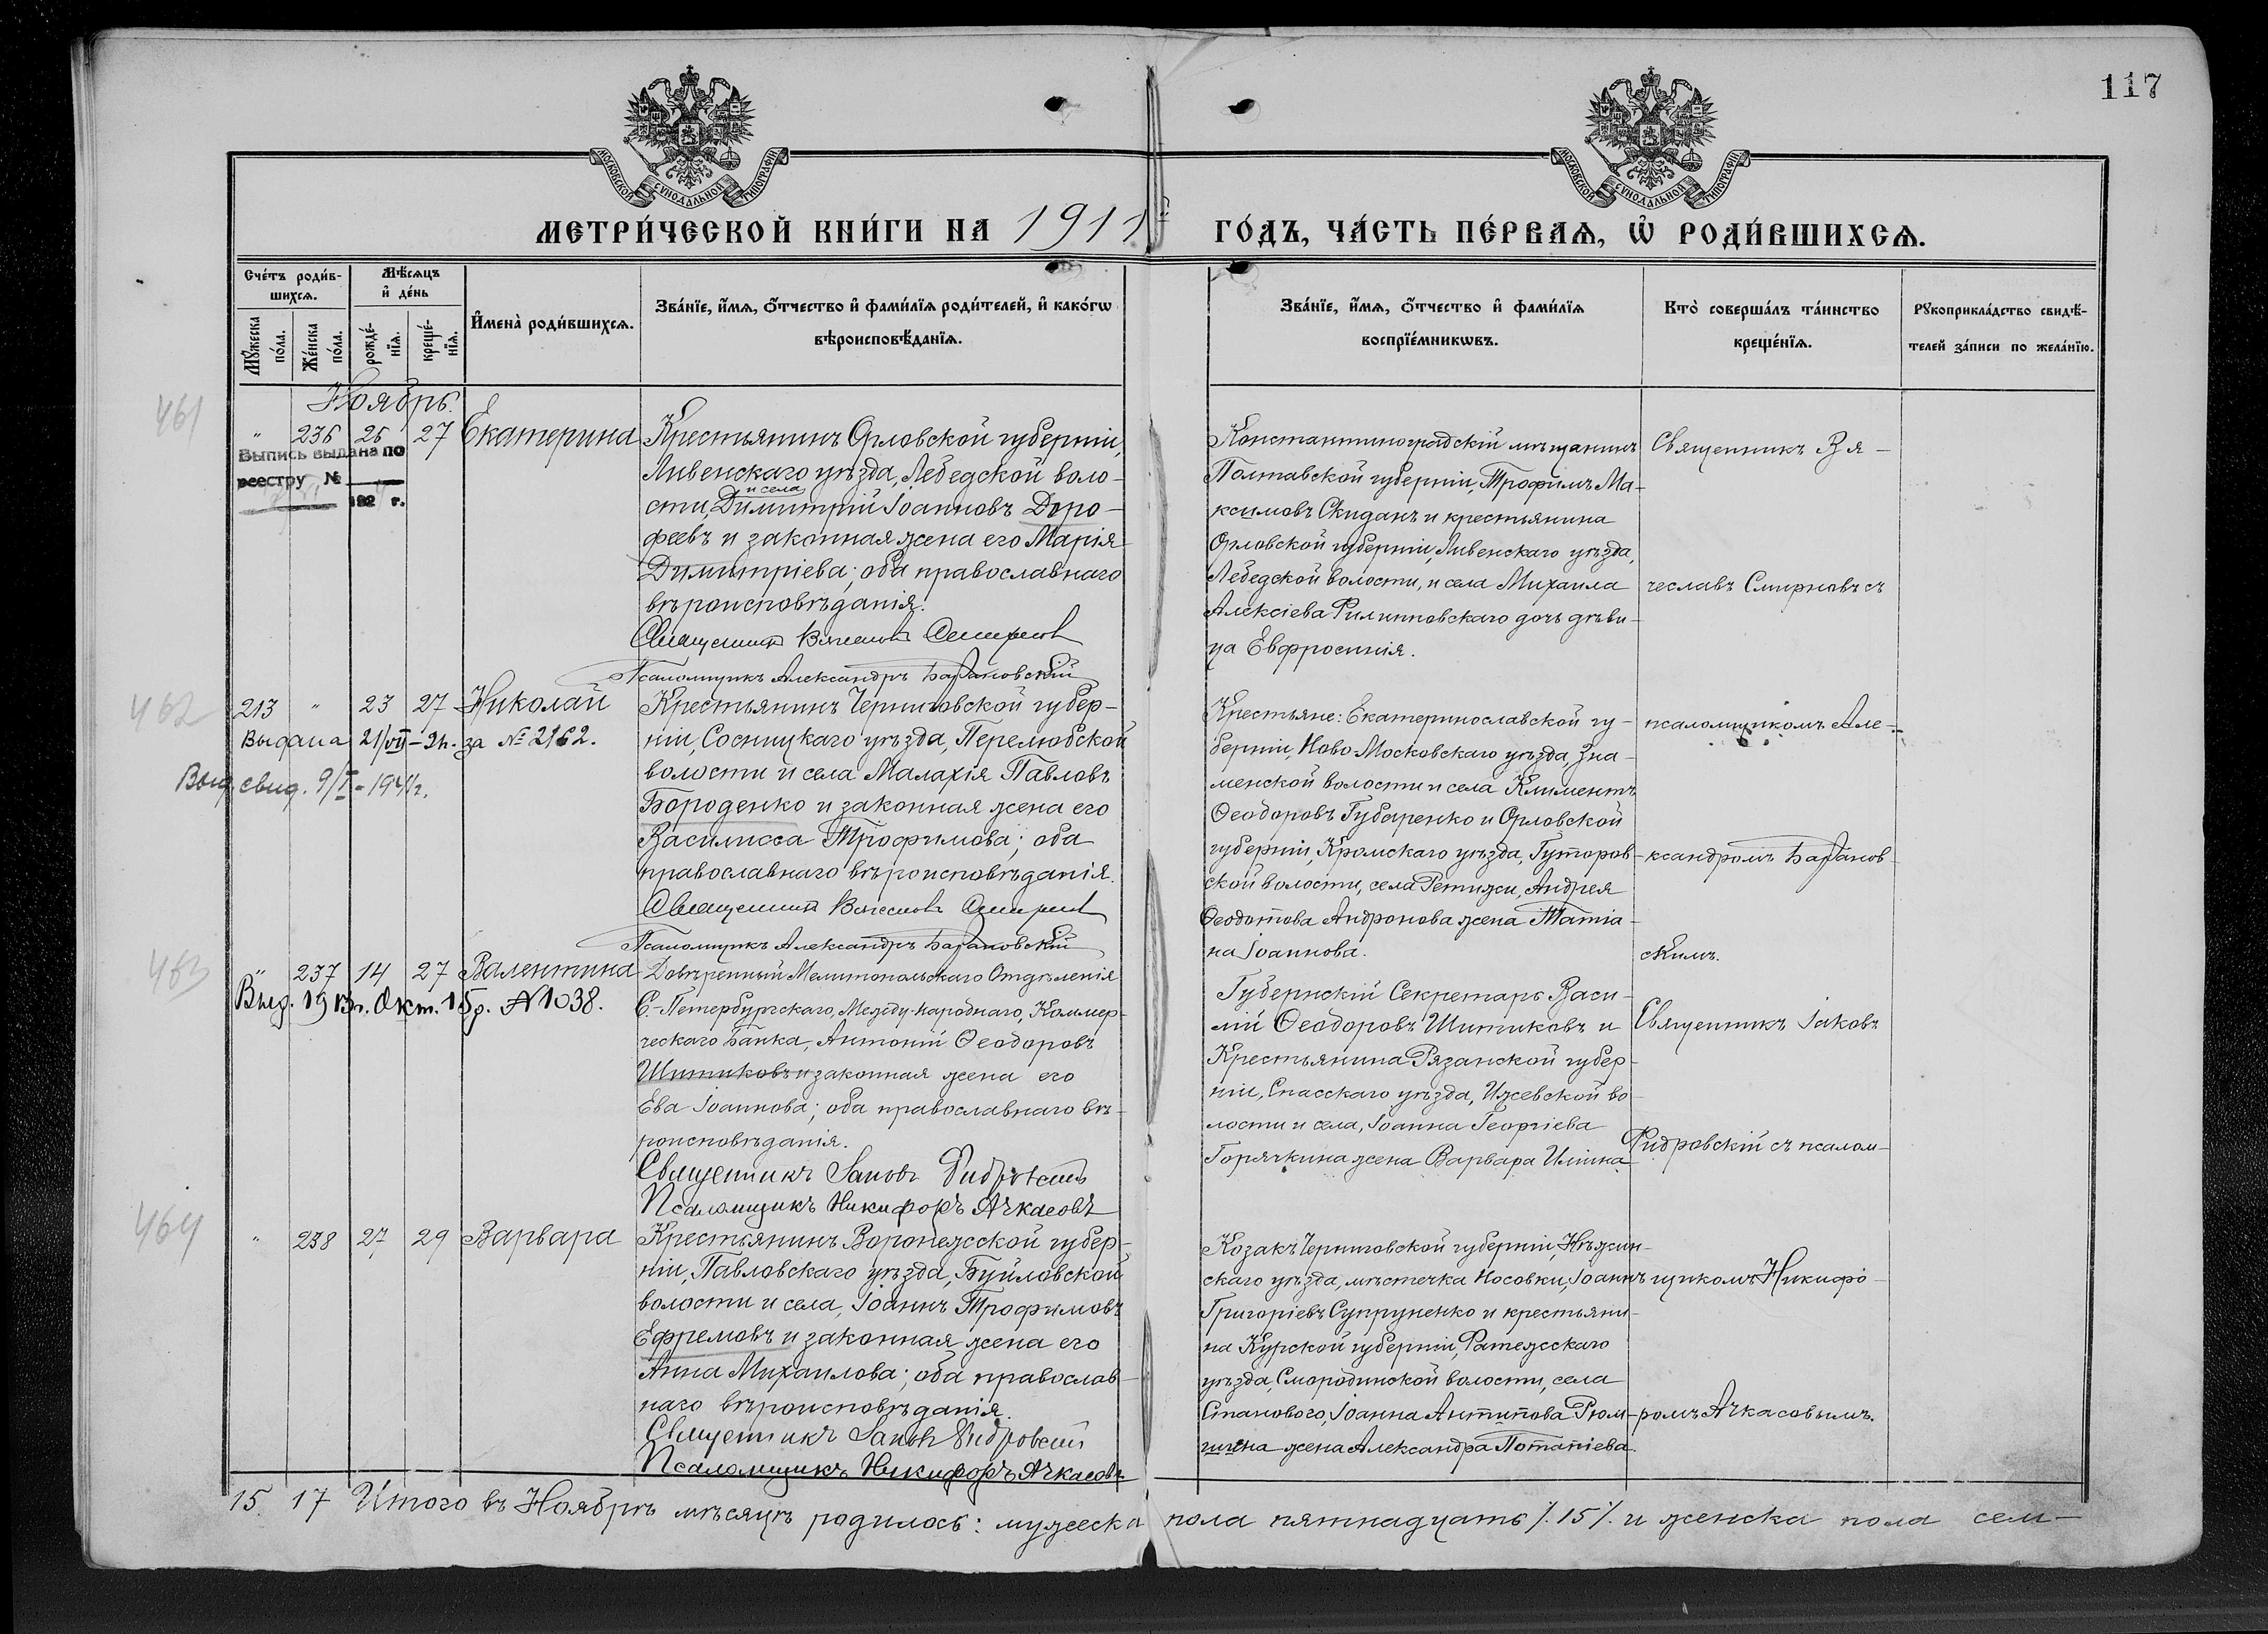 117
МОСКОВСКОЙ СУНОДАЛЬНОЙ ТИПОГРАФІИ
МОСКОВСКОЙ СУНОДАЛЬНОЙ ТИПОГРАФІИ
МЕТРИ́ЧЕСКОЙ КНИ́ГИ НА 1911 й ГО́ДЪ, ЧА́СТЬ ПЕ́РВАѦ, Ѡ҆ РОДИ́ВШИХСѦ.
Сче́тъ роди́в-
шихсѧ.
Мѣ́сѧцъ
и҆ де́нь
Мꙋ́жеска по́ла.
Же́нска по́ла.
рожде́-
нїѧ.
креще́-
нїѧ.
И҆мена̀ роди́вшихсѧ.
Зва́нїе, и҆́мѧ, ѻ҆́тчество и҆ фами́лїѧ роди́телей, и҆ како́гѡ
вѣроисповѣ́данїѧ.
Зва́нїе, и҆́мѧ, ѻ҆́тчество и҆ фами́лїѧ
воспрїе́мникѡвъ.
Кто̀ соверша́лъ та́инство
креще́нїѧ.
Рꙋкоприкла́дство свидѣ́-
телей за́писи по жела́нїю.
Ноябрь.
461
" 236 26 27 Екатерина
Выпись выдана по
реестру №
192 г.
Крестьянинъ Орловской губерніи,
Ливенскаго уѣзда, Лебедской воло-
и села
сти, Димитрій Іоанновъ Доро-
феевъ и законная жена его Марія
Димитріева; оба православнаго
вѣроисповѣданія.
Священникъ Вячеславъ Смирновъ
Псаломщикъ Александръ Барановскій
Константиноградскій мѣщанинъ
Полтавской губерніи, Трофимъ Ма-
ксимовъ Скиданъ и крестьянина
Орловской губерніи, Ливенскаго уѣзда,
Лебедской волости, и села Михаила
Алексіева Филипповскаго дочь дѣви-
ца Евфросинія.
Священникъ Вя-
чеславъ Смирновъ съ
462
213 " 23 27 Николай
Выдана 21/VII - г. за № 2162.
Выд. свид. 9/I - 1941г.
Крестьянинъ Черниговской губер-
ніи, Сосницкаго уѣзда, Перелюбской
волости и села Малахія Павловъ
Бороденко и законная жена его
Василисса Трофимова; оба
православнаго вѣроисповѣданія.
Священникъ Вячеславъ Смирновъ
Псаломщикъ Александръ Барановскій
Крестьяне: Екатеринославской гу-
берніи, Ново Московскаго уѣзда, Зна-
менской волости и села Климентъ
Ѳеодоровъ Губаренко и Орловской
губерніи, Кромскаго уѣзда, Гуторов-
ской волости, села Ретяжи, Андрея
Ѳеодотова Андронова жена Татіа-
на Іоаннова.
псаломщикомъ Але-
ксандромъ Баранов-
скимъ.
463
" 237 14 27 Валентина
Выд. 1913г. Окт. 15 д. № 1038.
Довѣренный Мелитопольскаго Отдѣленія
С.-Петербургскаго, Между-народнаго, Коммер-
ческаго банка, Антоній Ѳеодоровъ
Шитиковъ и законная жена его
Ева Іоаннова; оба православнаго вѣ-
роисповѣданія.
Священникъ Іаковъ Фидровскій
Псаломщикъ Никифоръ Ачкасовъ
Губернскій Секретарь Васи-
лій Ѳеодоровъ Шитиковъ и
Крестьянина Рязанской губер-
ніи, Спасскаго уѣзда, Ижевской во-
лости и села, Іоанна Георгіева
Горячкина жена Варвара Илiина
Священникъ Іаковъ
Фидровскій съ псалом-
464
" 238 27 29 Варвара
Крестьянинъ Воронежской губер-
ніи, Павловскаго уѣзда, Буйловской
волости и села, Іоаннъ Трофимовъ
Ефремовъ и законная жена его
Анна Михаилова; оба православ-
наго вѣроисповѣданія.
Священникъ Іаковъ Фидровскій
Псаломщикъ Никифоръ Ачкасовъ
Козакъ Черниговской губерніи, Нѣжин-
скаго уѣзда, мѣстечка Носовки, Іоаннъ
Григоріевъ Супруненко и крестьяни-
на Курской губерніи, Фатежскаго
уѣзда, Смородинской волости, села
Становаго, Іоанна Антипова Рюм-
шина жена Александра Потапіева.
щикомъ Никифо-
ромъ Ачкасовымъ.
15. 17 Итого въ Ноябрѣ мѣсяцѣ родилось: мужеска пола пятнадцать /.15/. и женска пола сем-